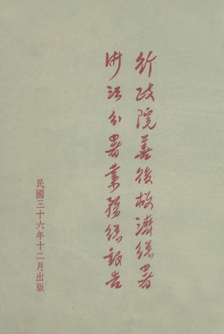 行政院善後救濟總署
浙江分署業務總報告
民國三十六年十二月出版